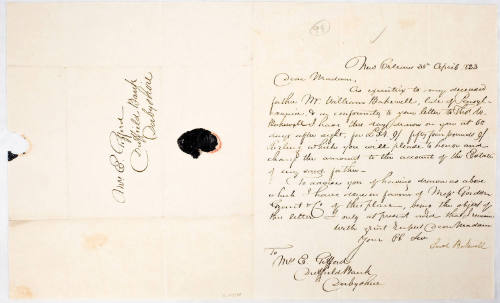 Mrs E. Gifford
Duffield Bank
Derbyshire
New Orleans 30th April 1823
Dear Madam,
As executor to my deceased
father Mr. William Bakewell, late of Pennsyl-
vania, & in conformity to your letter to Thos. W.
Bakewell I have this day drawn on you at 60
days after sight, for £54. Of/ fifty four pounds
Sterling which you will please to honor and
charge the amount to the account of the Estate
of my said father—
To advise you of having drawn as above
which I have done in favour of Messrs Gordon
Grant & Co of this place, being the object of
this letter I only at present add that I remain
With great respect Dear Madam
Your Ob Ser
Bakewell
To
Mrs E. Gifford
Duffield Bank
Derbyshire